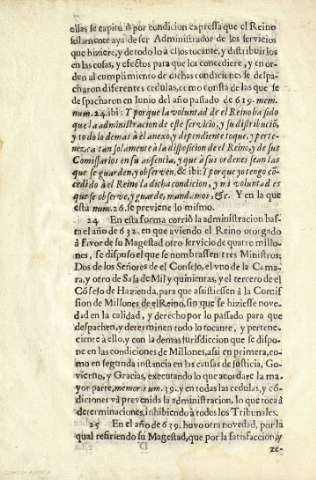 ellas se capitu ò por condicion expressa que el Reino
solamente aya de ser Administrador de los servicios
que hiziere, y de todo lo à ellos tocante, y distribuirlos
en las cosas, y efectos para que los concediere, y en or-
den al cumplimiento de dichas condiciones se despa-
charon diferentes cedulas, como consta de las que se
despacharon en Iunio del año passado de 619. mem.
num. 24. ibi: Y porque la voluntad de el Reino ha sido
que la administracion de este servicio, y su distribució,
y todo lo demas à el anexo, y dependiente toque, y perte-
nezca tan solamente à la disposicion de el Reino, y de sus
Comissarios en su ausencia, y que à sus ordenes sean las
que se guarden, y observen, & ibi: Y porque yo tengo có-
cedido àl Reino la dicha condicion, y mi voluntad es
que se observe, y guarde, mandamos, &c. Y en la que
està num. 26. se previene lo mismo.
24 En esta forma corriò la administracion has-
ta el año de 632. en que aviendo el Reino otorgado
à favor de su Magestad otro servicio de quatro millo-
nes, se dispuso el que se nombrassen tres Ministros;
Dos de los Señores de el Consejo, el vno de la Cama-
ra, y otro de Sala de Mil y quinientas, y el tercero de el
Cósejo de Hazienda, para que assistiessen à la Comis-
sion de Millones de el Reino, sin que se hiziesse nove-
dad en la calidad, y derecho por lo passado para que
despachen, y determinen todo lo tocante, y pertene-
ciente à ello, y con la demas jurisdiccion que se dispo-
ne en las condiciones de Millones, assi en primera, co-
mo en segunda instancia en las causas de Iusticia, Go-
vierno, y Gracias, executando lo que acordare la ma-
yor parte, memor. num. 39. y en todas las cedulas, y có-
diciones và prevenida la administracion, lo que toca à
determinaciones, inhibiendo à todos los Tribunales.
25 En el año de 639. huvo otra novedad, por la
qual refiriendo su Magestad, que por la satisfacion, y
ze-